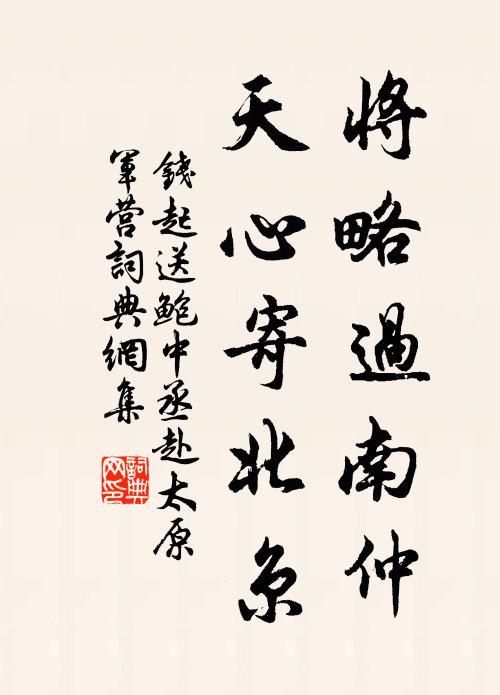 將略過南仲
天心寄北京
錢起送鮑中丞赴太原
軍營詞典網集
詞典
网印